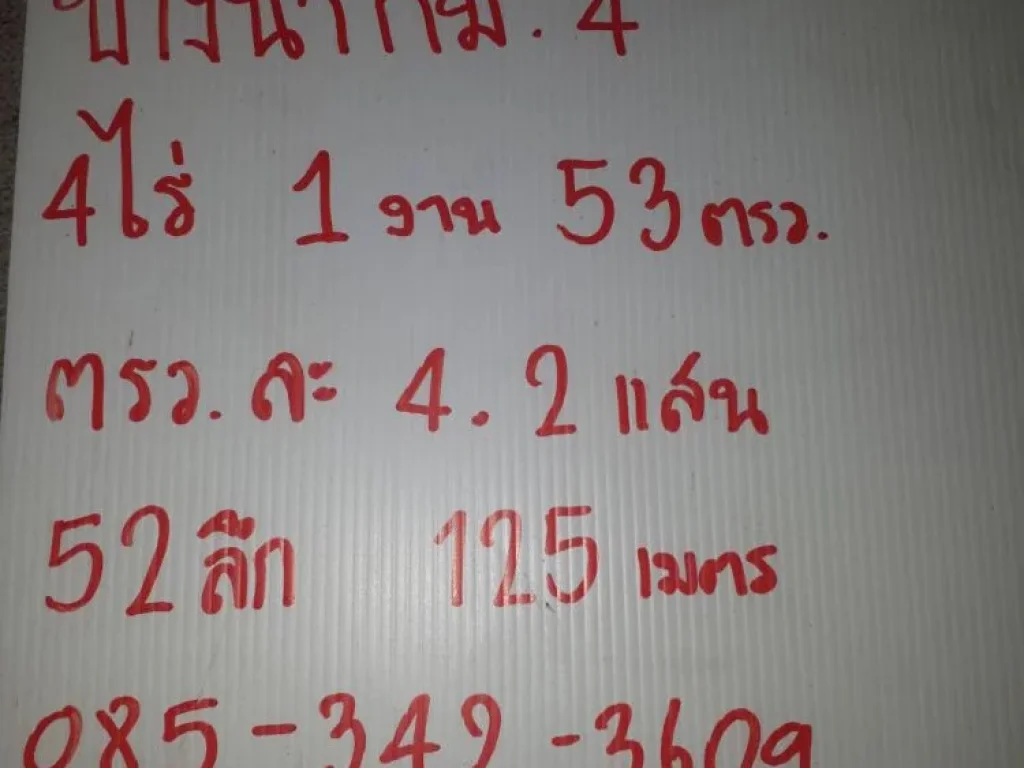 บางนา กม. 4
4 ไร่ 1 งาน 53 ตรว.
ตรว. ละ 4.2 แสน
52 ลึก 125 เมตร
085-342-3609